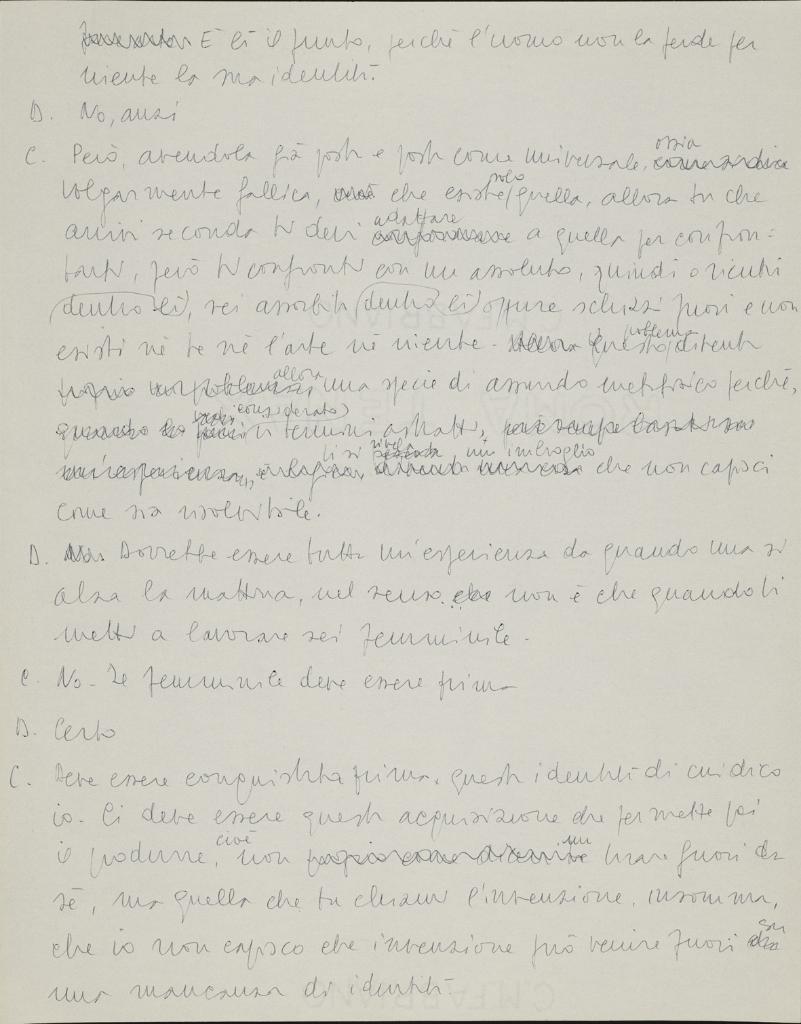 E lì il punto, perché l'uomo non la perde per
niente la sua identità.
D. No, anzi
C. Però, avendola già posta e posta come universale, ossia
volgarmente fallica, che esiste solo quella, allora tu che
arrivi seconda ti devi adattare a quella per confron=
tarti, però ti confronti con un assoluto, quindi o rientri
dentro lì, sei assorbita dentro lì oppure schizzi fuori e non
esisti né te né l'arte né niente. Questo problema diventa
allora una specie di assurdo metafisico perché,
considerato in termini astratti,
lì si rivela un imbroglio che non capisci
come sia risolvibile.
D. Dovrebbe essere tutta un'esperienza da quando una si
alza la mattina, nel senso che non è che quando ti
metti a lavorare sei femminile.
C. No. Il femminile deve essere prima
D. Certo
C. Deve essere conquistata prima, questa identità di cui dico
io. Ci deve essere questa acquisizione che permette poi
il produrre, cioè, non un tirare fuori da
sé, ma quella che tu chiami l'invenzione. Insomma,
che io non capisco che invenzione può venire fuori su
una mancanza di identità.